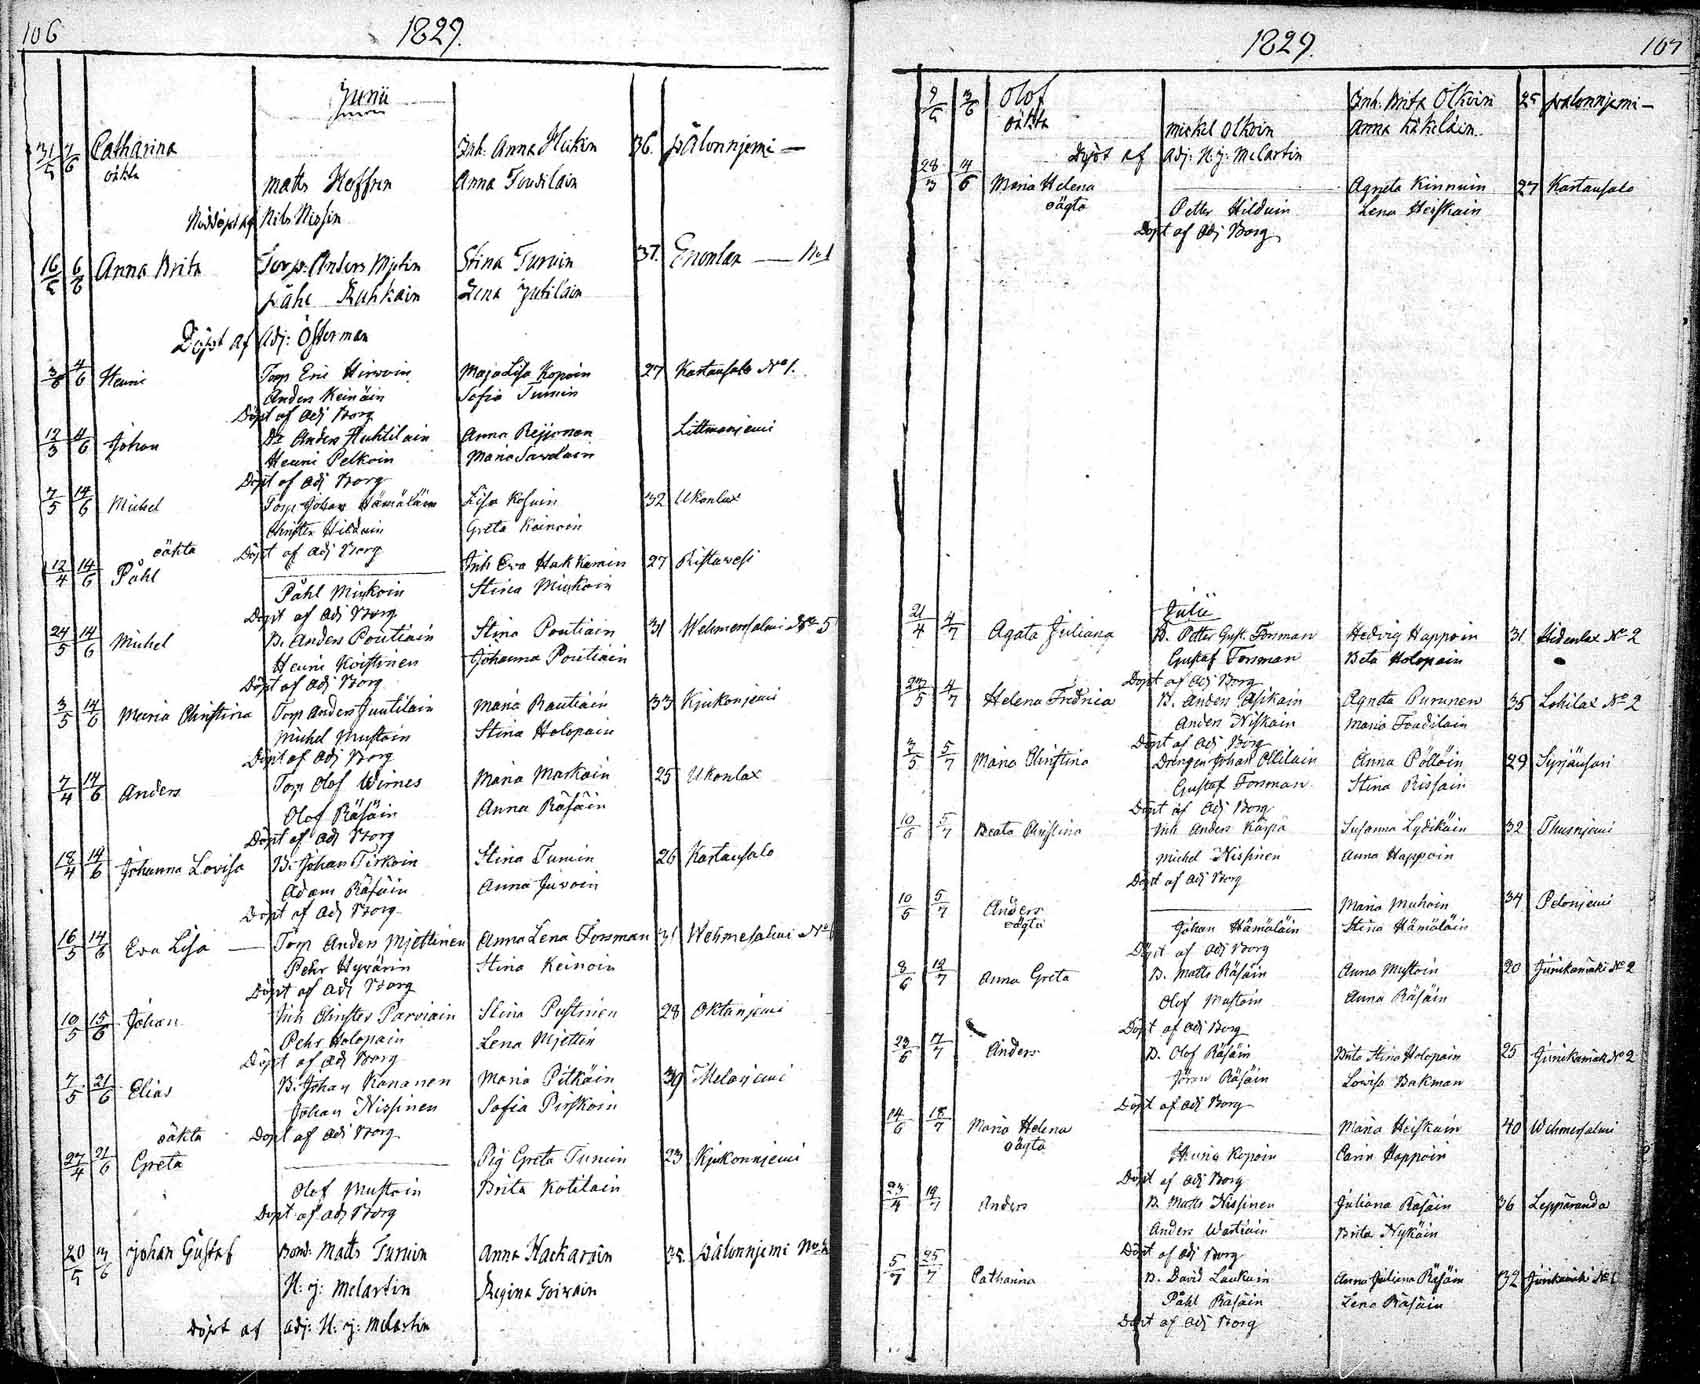 106
1829.
Junii
31/5 7/6 Catharina Inh. Anna Heikin 36. Pälonnjemi —
oäkta Matts Hoffren Anna Toudilain
Nöddöpt af Nils Nissin
16/5 6/6 Anna Brita Torp. Anders Mjetin Stina Turuin 37. Enonlax — No 1
Påhl Ruhkain Lena Jutilain
Döpt af Adj: Österman
3/6 4/6 Henric Torp Eric Hirvoin Maja Lisa Kopoin 27 Kartausalo No 1.
Anders Keinäin Sofia Turuin
Döpt af Adj Borg
12/3 4/6 Johan Dr Anders Huhtilain Anna Reijonen Littmanjemi
Henric Pelkoin Maria Savolain
Döpt af Adj Borg
7/5 14/6 Michel Torp Johan Hämäläin Lisa Kosuin 32 Ukonlax
Christer Hilduin Greta Kainoin
oäkta Döpt af Adj Borg
12/4 14/6 Påhl Inh Eva Hakkarain 27 Ristavesi
Påhl Miskoin Stina Miskoin
Döpt af Adj Borg
24/5 14/6 Michel B. Anders Poutiain Stina Poutiain 31 Wehmersalmi No 5
Henric Koistinen Johanna Poutiain
Döpt af Adj Borg
3/5 14/6 Maria Christina Torp Anders Juutilain Maria Rautiain 33 Kjukonjemi
Michel Mustoin Stina Holopain
Döpt af Adj Borg
7/4 14/6 Anders Torp Olof Wirnes Maria Markain 25 Ukonlax
Olof Räsäin Anna Räsäin
Döpt af Adj Borg
18/4 14/6 Johanna Lovisa B. Johan Tirkoin Stina Turuin 26 Kartausalo
Adam Räsäin Anna Juvoin
Döpt af Adj Borg
16/5 14/6 Eva Lisa — Torp Anders Mjettinen Anna Lena Forsman 31 Wehmesalmi No
Pehr Hyvärin Stina Keinoin
Döpt af Adj Borg
10/5 15/6 Johan Inh Christer Parviain Stina Pustinen 28 Oktanjemi
Pehr Holopain Lena Mjettin
Döpt af Adj Borg
7/5 21/6 Elias B. Johan Kananen Maria Pitkäin 39 Melanjemi
Johan Nissinen Sofia Pirskoin
oäkta Döpt af Adj Borg
27/4 21/6 Greta Pig Greta Turuin 23 Kjukonnjemi
Olof Mustoin Brita Kotilain
Döpt af Adj Borg
20/5 13/6 Johan Gustaf Bond. Matts Turuin Anna Hackarain 35. Pälonnjemi No 2
H. J: Melartin Regina Toivain
Döpt af Adj: H: J: Melartin
1829.
107
2/5 3/6 Olof Inh. Brita Olkoin 25 Pälonnjemi —
oäkta Michel Olkoin Anna Käkeläin
Döpt af Adj: H: J: Melartin
28/3 4/6 Maria Helena Agneta Kinnuin 27 Kartausalo
oägta Petter Hilduin Lena Heiskain
Döpt af Adj Borg
Julii
21/4 4/7 Agata Juliana B. Petter Gust. Forsman Hedvig Happoin 31 Hidenlax No 2
Gustaf Forsman Beta Holopain
Döpt af Adj Borg
27/5 4/7 Helena Fredrica B. Anders Asikain Agneta Purunen 35 Lohilax No 2
Anders Niskain Maria Toudilain
Döpt af Adj Borg
3/5 5/7 Maria Christina Drengen Johan Ollilain Anna Pölläin 29 Syrjänsari
Gustaf Forsman Stina Rissain
Döpt af Adj Borg
10/6 5/7 Beata Christina Inh Anders Karpa Susanna Lydikäin 32 Thusnjemi
Michel Nissinen Anna Happoin
Döpt af Adj Borg
10/5 5/7 Anders Maria Muhoin 34 Pelonjemi
oägta Johan Hämäläin Stina Hämäläin
Döpt af Adj Borg
8/6 12/7 Anna Greta B. Matts Räsäin Anna Mustoin 20 Junikamäki No 2
Olof Mustoin Anna Räsäin
Döpt af Adj Borg
23/6 17/7 Anders B. Olof Räsäin Brita Stina Holopain 25 Junikamäki No 2
Jöran Räsäin Lovisa Bakman
Döpt af Adj Borg
14/6 18/7 Maria Helena Maria Heiskain 40 Wehmersalmi
oägta Henric Kopoin Carin Happoin
Döpt af Adj Borg
23/4 19/7 Anders B. Matts Nissinen Juliana Räsäin 36 Lepparanda
Anders Wartiain Brita Nykäin
Döpt af Adj Borg
5/7 25/7 Catharina B. David Laukain Anna Juliana Räsäin 32 Junikamäki No 1
Påhl Räsäin Lena Räsäin
Döpt af Adj Borg